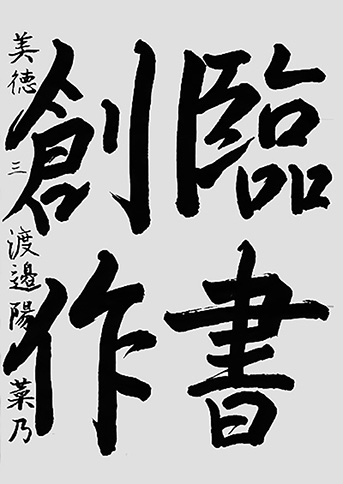 臨書
創作
美徳 三 渡邉陽菜乃